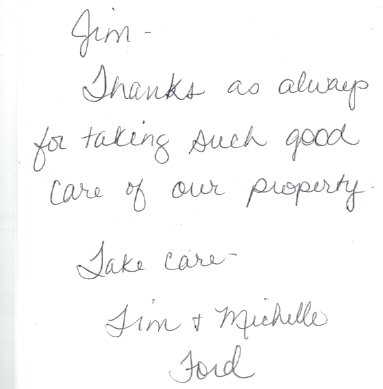 Jim -
Thanks as always
for taking such good
care of our property.
Take care -
Tim & Michelle
Ford